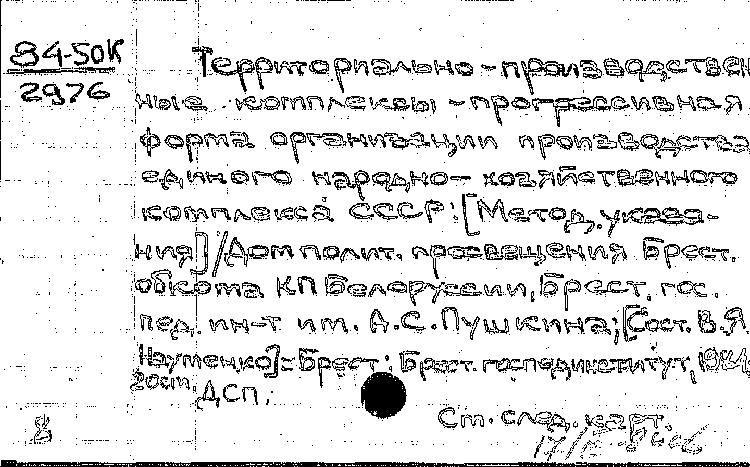 84-50К
2976
Территориально-производствен
ные комплексы - прогрессивная
форма организации производства
единого народно-хозяйственного
комплекса СССР: [Метод. указа-
ния] / Дом полит. просвещения Брест.
обкома КП Белоруссии, Брест. гос.
пед. ин-т им. А.С. Пушкина; [Сост. В.Я.
Науменко] - Брест: Брест. госпединститут, 1984,
20см,
ДСП.
См. след. карт.
8